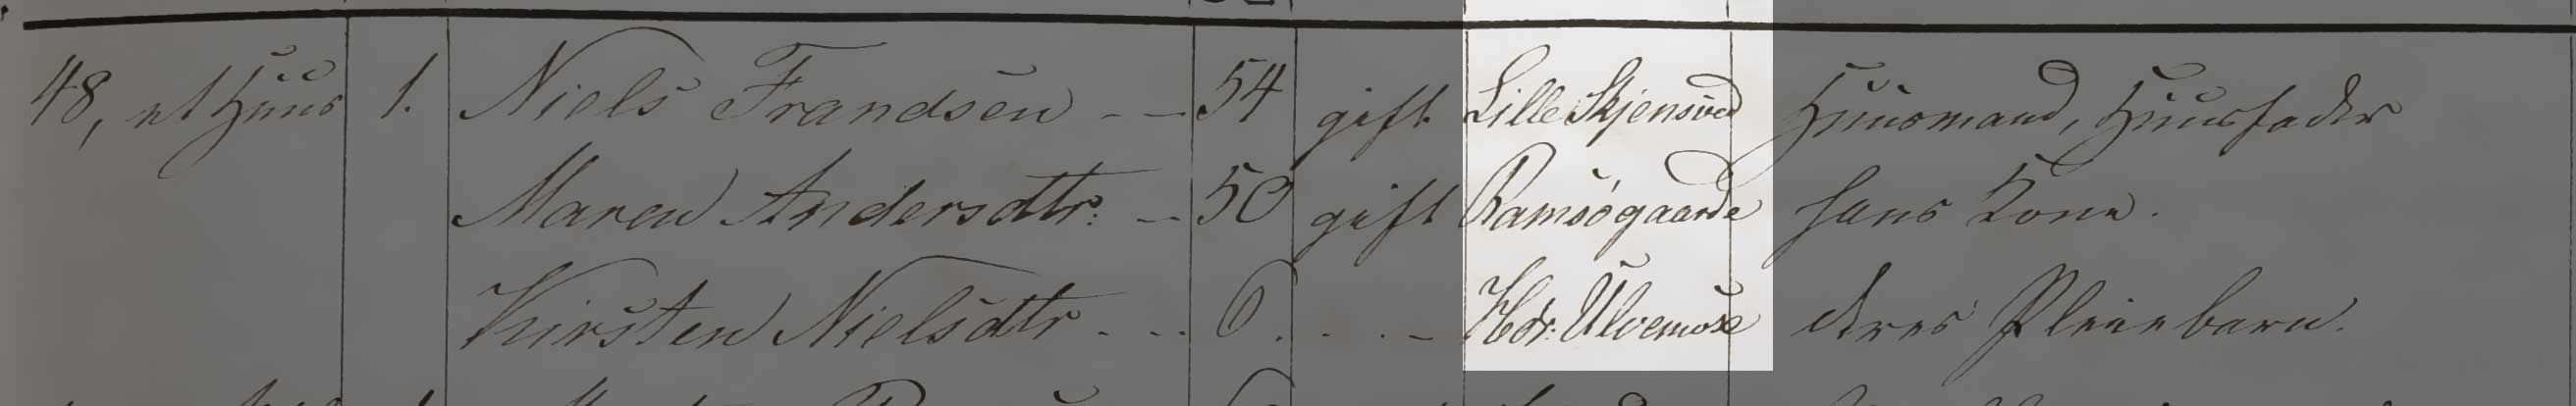 48, et Huus 1. Niels Frandsen - - 54 gift Lille Skjensved Huusmand, Huusfader
Maren Andersdtr: - - 50 gift Ramsögaarde hans Kone.
Kirsten Nielsdtr - - - 6. - - - Hdr: Ulvemose deres Pleiebarn.